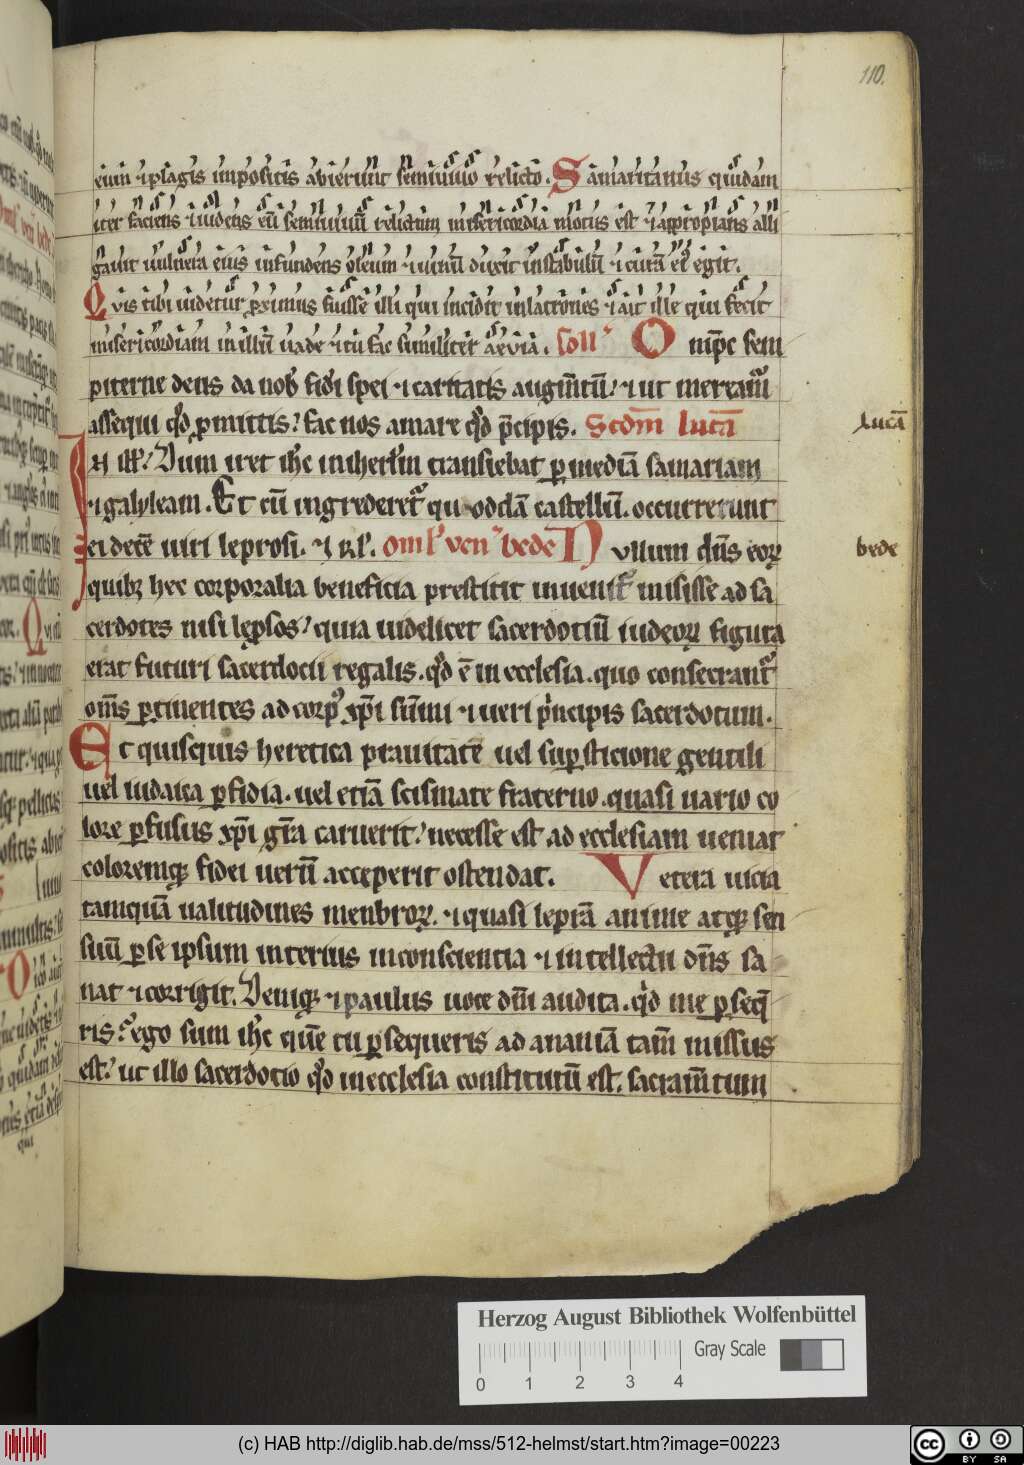 110.
eum ⁊ plagis impositis abierunt semiuiuo relicto. Samaritanus quidam
iter faciens ⁊ uidens eū semiuiuū relictum misericordia motus est ⁊ appropians alli
gauit uulnera eius infundens oleum ⁊ uinū duxit in stabulū ⁊ curā ei egit.
Quis tibi uidetur ꝓximus fuisse illi qui incidit in latrones ⁊ ait ille qui fecit
misericordiam in illū uade ⁊ tu fac similiter aeuia. Coll' Omp̄c sem
piterne deus da nob' fidei spei ⁊ caritatis augm̄tū ⁊ ut mereamur
assequi qd ꝓmittis fac nos amare qd p̄cipis. Scdm̄ lucā
lucā
In ill' Dum iret ihc in iherl'm transiebat ꝑ mediā samariam
⁊ galyleam. Et cū ingrederet' quoddā castellū. occurrerunt
ei decē uiri leprosi. ⁊ Rl'. oml' ven' bede Nullum dn̄s eoꝝ
bede
quibꝫ hec corporalia beneficia prestitit inuenit' misisse ad sa
cerdotes nisi leprosos quia uidelicet sacerdotiū iudeoꝝ figura
erat futuri sacerdocii regalis. qd ē in ecclesia. quo consecrant'
om̄s ꝑtinentes ad corp' xp̄i sūmi ⁊ ueri p'ncipis sacerdotum.
Et quisquis heretica prauitate uel suꝑsticione gentili
uel iudaica ꝑfidia. uel etiā scismate fraterno. quasi uario co
lore ꝑfusus xp̄i gr̄a caruerit necesse est ad ecclesiam ueniat
coloremqꝫ fidei uerū acceperit ostendat. Vetera uicia
tamquā ualitudines menbroꝝ. ⁊ quasi leprā anime atqꝫ sen
suū ꝑ se ipsum interius in conscientia ⁊ intellectu dn̄s sa
nat ⁊ corrigit. Deniqꝫ ⁊ paulus uoce dn̄i audita. qd me ꝑseq̄
ris ego sum ihc quē tu ꝑsequeris ad ananiā tam̄ missus
est ut illo sacerdotio qd in ecclesia constitutū est. sacram̄tum
Herzog August Bibliothek Wolfenbüttel
Gray Scale
0 1 2 3 4
(c) HAB http://diglib.hab.de/mss/512-helmst/start.htm?image=00223
cc BY SA